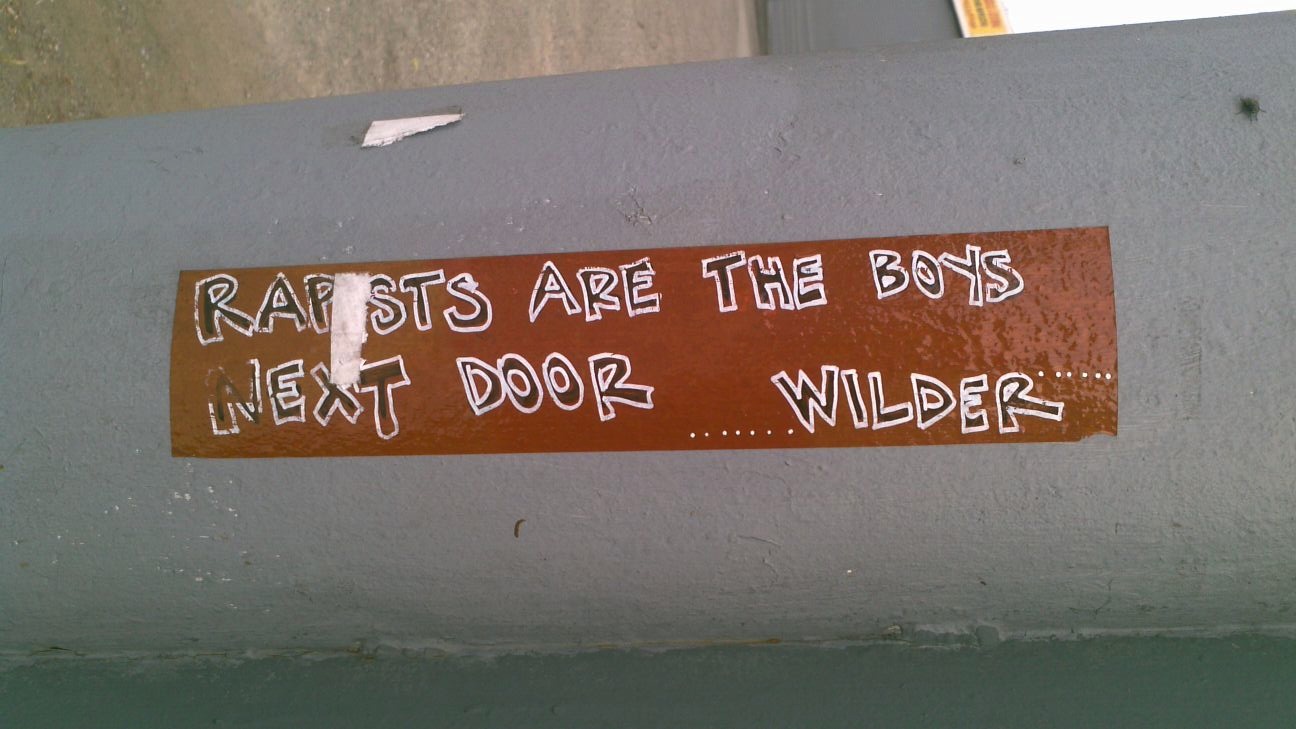 RAPISTS ARE THE BOYS
NEXT DOOR .......WILDER.....